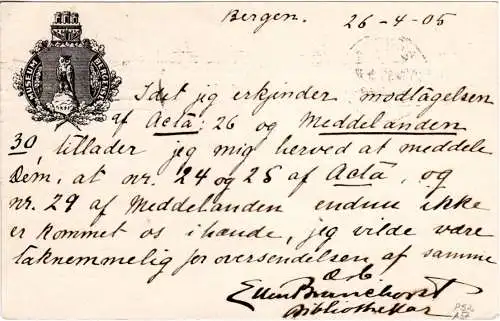 Bergen. 26-4-05
MUSEUM BERGENSE
Idet jeg erkjender modtagelsen
af Acta: 26 og Meddelanden
30, tillader jeg mig herved at meddele
Dem, at nr. 24 og 25 af Acta, og
nr. 29 af Meddelanden endnu ikke
er kommet os i hænde, jeg vilde være
taknemmelig for oversendelsen af samme
Ellen
Bibliothekar